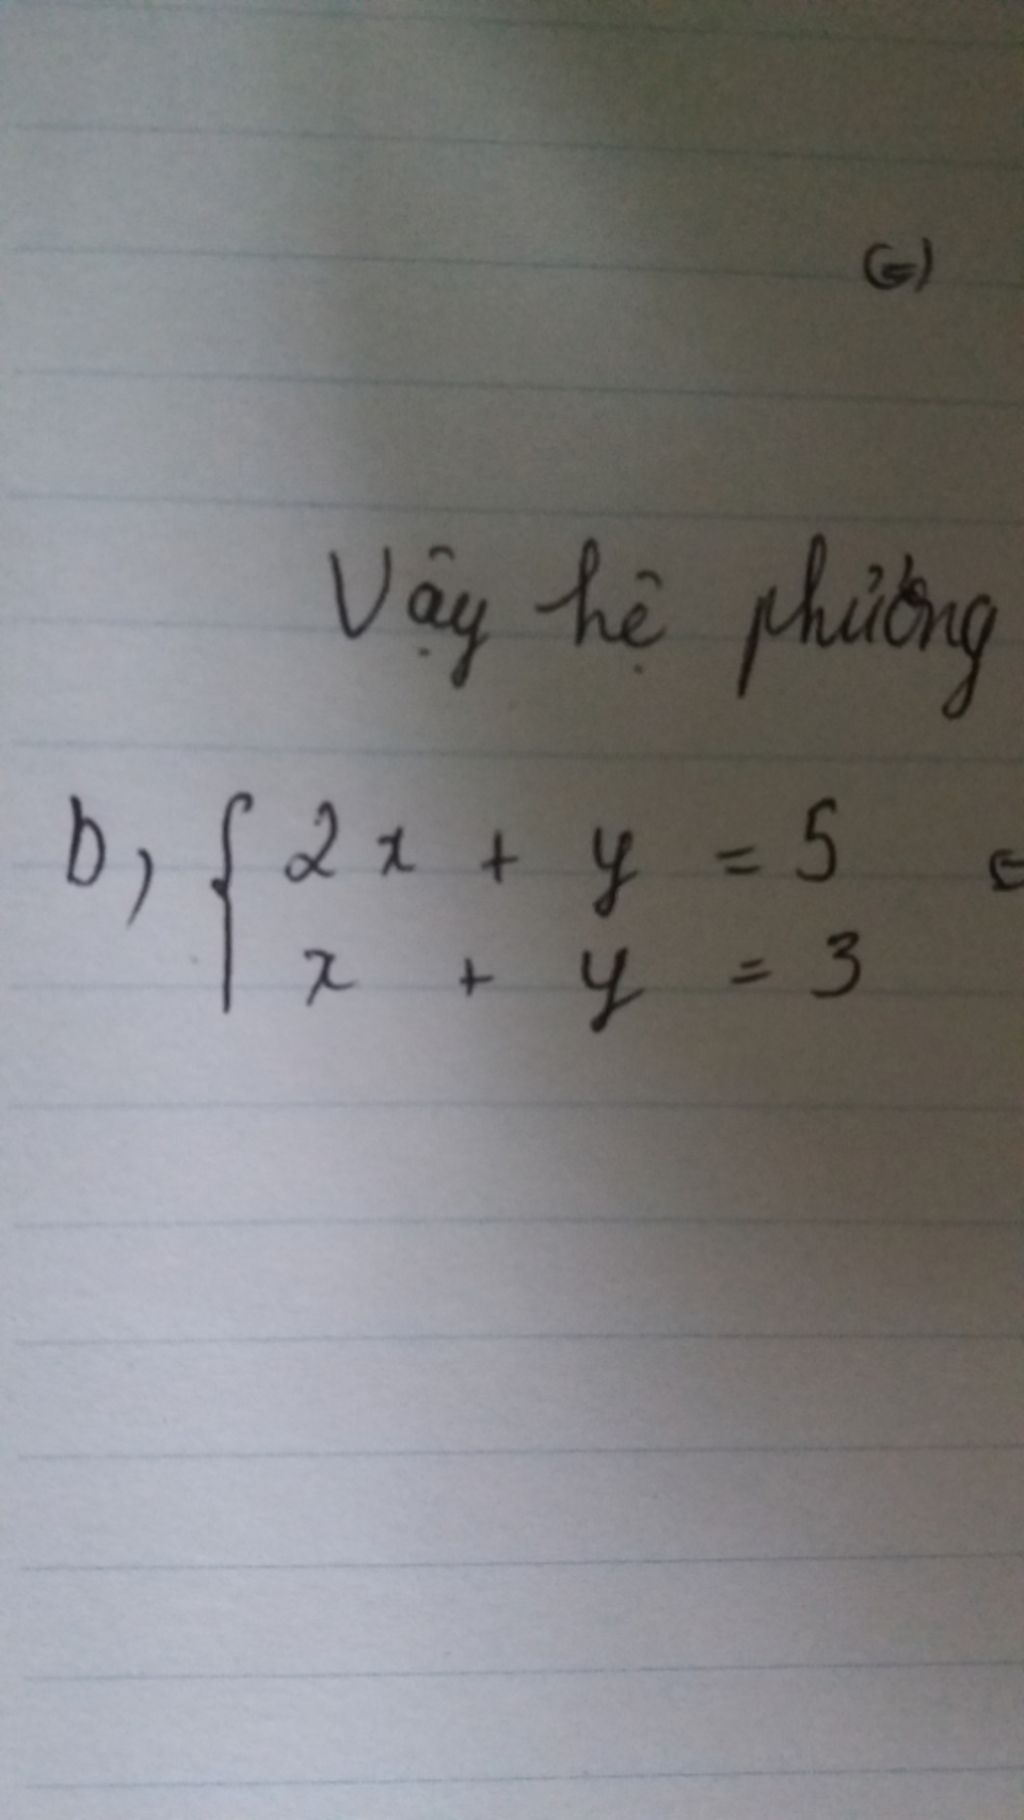 (=)
Vậy hệ phương
b, { 2x + y = 5
x + y = 3